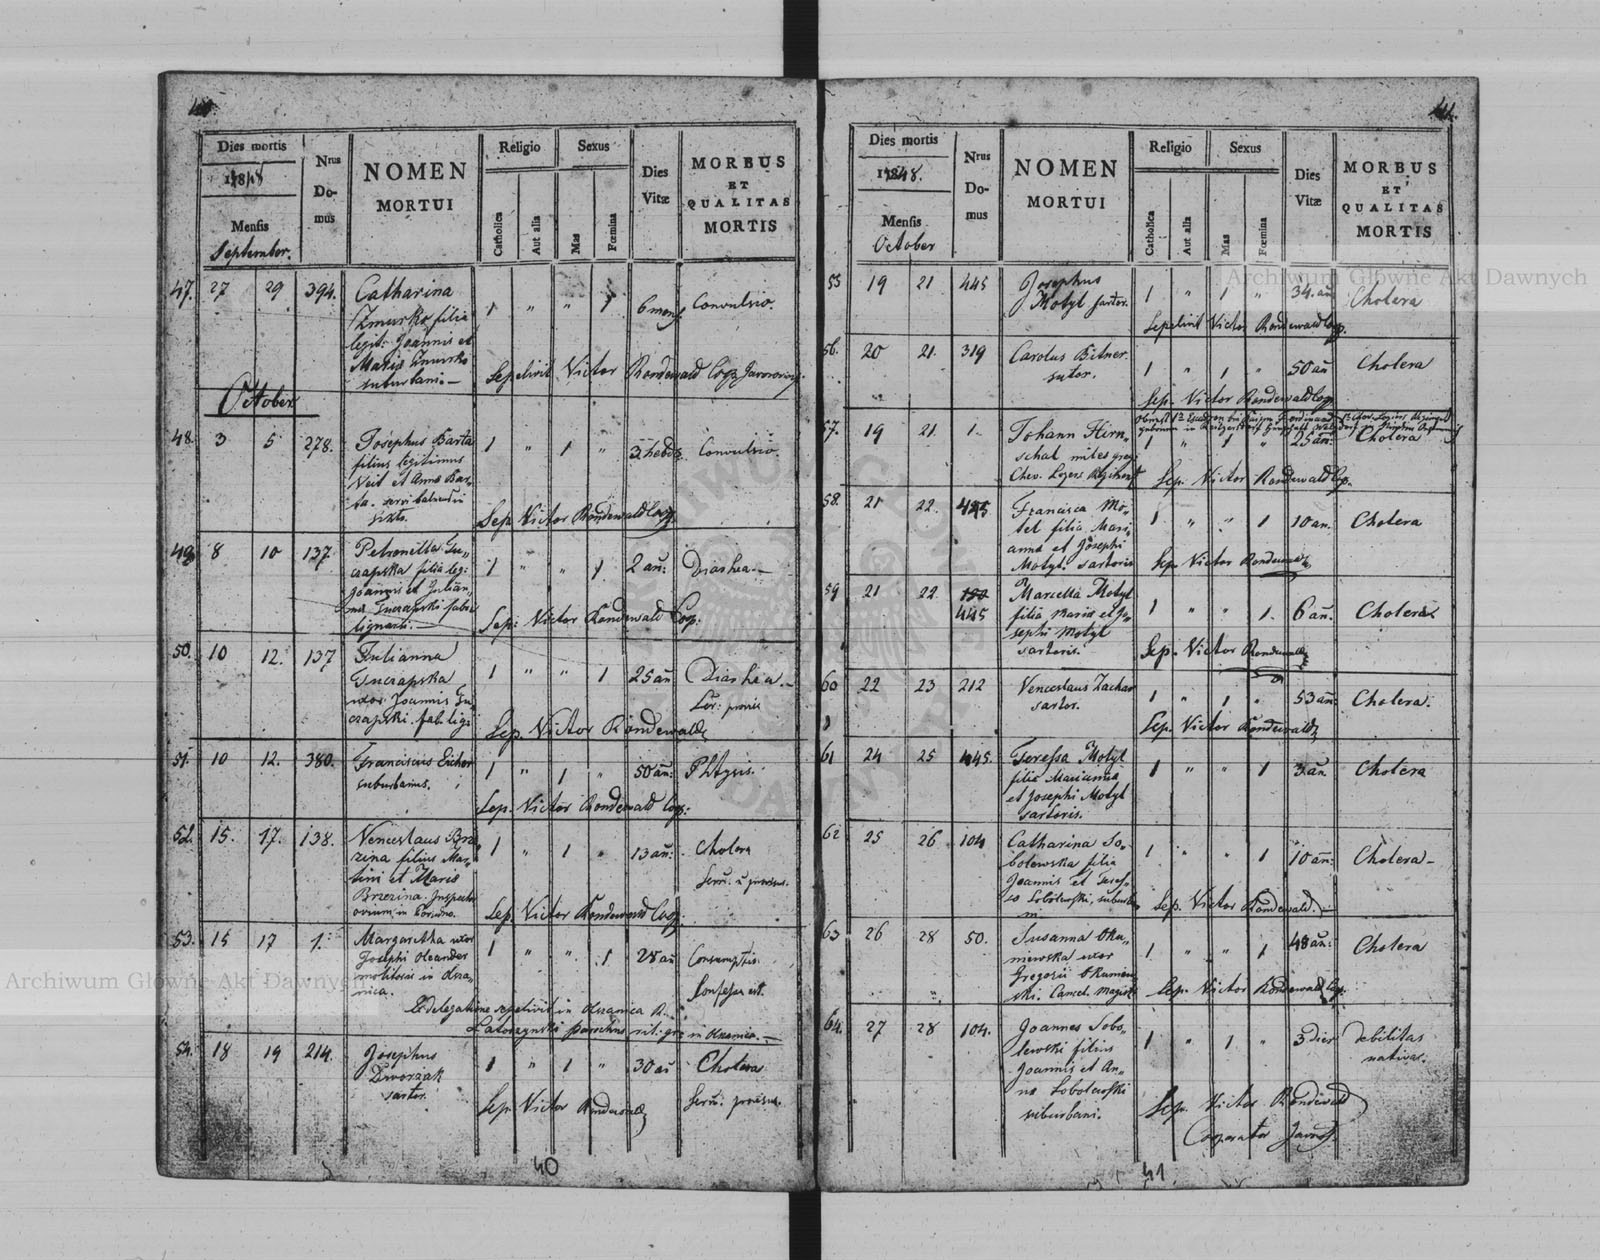 40.
Dies mortis
1848
Mensis
September.
Nrus
Do-
mus
NOMEN
MORTUI
Religio
Catholica
Aut alia
Sexus
Mas
Fœmina
Dies
Vitæ
MORBUS
ET
QUALITAS
MORTIS
47. 27 29 394. Catharina 1 " " 1 6 mens. Convulsio.
Zmurko filia
legit: Joannis et
Maria Zmurko
suburbani. —
Sepelivit Victor Rondewald Coop.
October
48. 3 5 278. Josephus Barta 1 " 1 " 3 hebd. Convulsio.
filius legitimus
Veit et Anna Bar-
ta
Sep. Victor Rondewald Coop.
49. 8 10 137. Petronella Gu- 1 " " 1 2 an: Diarhea. —
czapska filia leg:
Joannis et Julian-
na Guczapski fabri
lignarii.
Sep: Victor Rondewald Coop.
50. 10 12. 137 Julianna 1 " " 1 25 an Diarhea. —
Guczapska
uxor Joannis Gu
czapski. fab. lig:
Sep. Victor Rondewald
51. 10 12. 380. Franciscus Eicher 1 " 1 " 50 an: Phtysis.
suburbanus.
Sep. Victor Rondewald Coop.
52. 15. 17. 138. Venceslaus Brze 1 " 1 " 13 an: Cholera
zina filius Mar-
tini et Maria
Brzezina
Sep. Victor Rondewald Coop
53. 15 17 1. Margaritha uxor 1 " " 1 28 an Consumptio.
Josephi Oleander
molitoris in Olsza-
nica.
Confessa est.
E delegatione sepelivit in Olszanica R.
parochus rit. gr. in Olszanica. —
54. 18 19 214. Josephus 1 " 1 " 30 an Cholera
Dworżak
sartor.
Sep. Victor Rondewald
40
41.
Dies mortis
1848.
Mensis
October
Nrus
Do-
mus
NOMEN
MORTUI
Religio
Catholica
Aut alia
Sexus
Mas
Fœmina
Dies
Vitæ
MORBUS
ET
QUALITAS
MORTIS
55 19 21 445 Josephus 1 " 1 " 34. an Cholera
Motyl sartor.
Sepelivit Victor Rondewald Coop.
56. 20 21. 319 Carolus Bitner 1 " 1 " 50 an Cholera
sutor.
Sep. Victor Rondewald Coop
57. 19 21. 1. Johann Hirn- 1 " 1 " 25 an: Cholera
schal miles
Sep. Victor Rondewald Coop.
58. 21 22. 445 Francisca Mo- 1 " " 1 10 an. Cholera
tel filia Mari-
anna et Josephi
Motyl. sartoris
Sep. Victor Rondewald
59 21 22. 445 Marcella Motyl 1 " " 1. 6 an. Cholera
filia Maria et Jo-
sephi Motyl
sartoris.
Sep. Victor Rondewald
60 22 23 212 Venceslaus Zachar 1 " 1 " 53 an: Cholera.
sartor.
Sep. Victor Rondewald
61 24 25 445. Teressa Motyl 1 " " 1 3 an. Cholera
filia Marianna
et Josephi Motyl
sartoris.
62 25 26 104 Catharina So- 1 " " 1 10 an: Cholera —
bolewska filia
Joannis et Teres-
sa Sobolewski, suburba
ni
Sep. Victor Rondewald. —
63 26 28 50. Susanna Oka- 1 " " 1 48 an: Cholera
niewska uxor
Gregorii
Sep. Victor Rondewald Coop.
64. 27 28 104. Joannes Sobo- 1 " 1 " 3 dier debilitas
lewski filius nativa.
Joannis et An-
na Sobolewski
suburbani.
Sep. Victor Rondewald
Cooperator
41
Archiwum Główne Akt Dawnych
Archiwum Główne Akt Dawnych